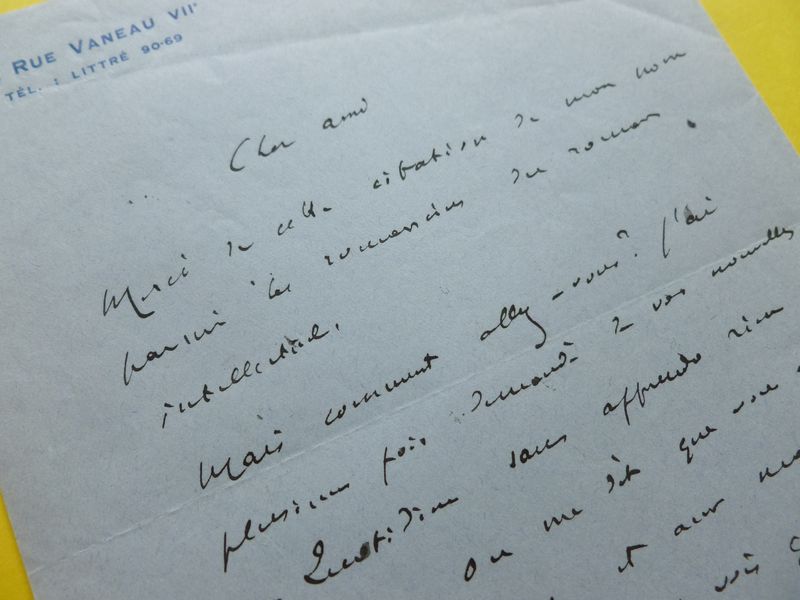 RUE VANEAU VIIᵉ
TÉL. : LITTRÉ 90-69
Cher ami
Merci de cette citation de mon nom
parmi les romanciers du roman
intellectuel.
Mais comment allez-vous? J'ai
plusieurs fois demandé de vos nouvelles
Quotidien sans apprendre rien
On me dit que vous
et